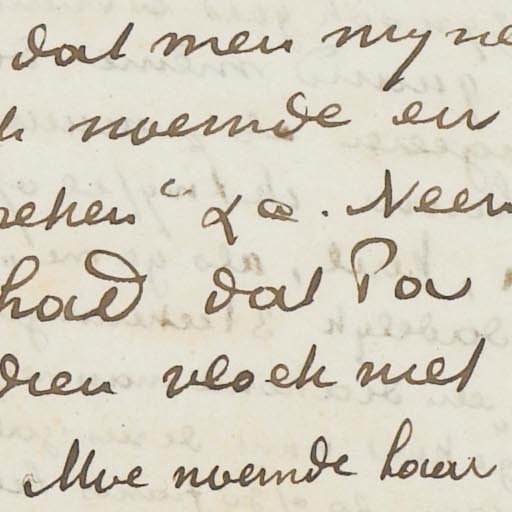 dat men myne
noemde en
reken" &a. Neem
had dat Pa
dien vloek met
Moe noemde haar